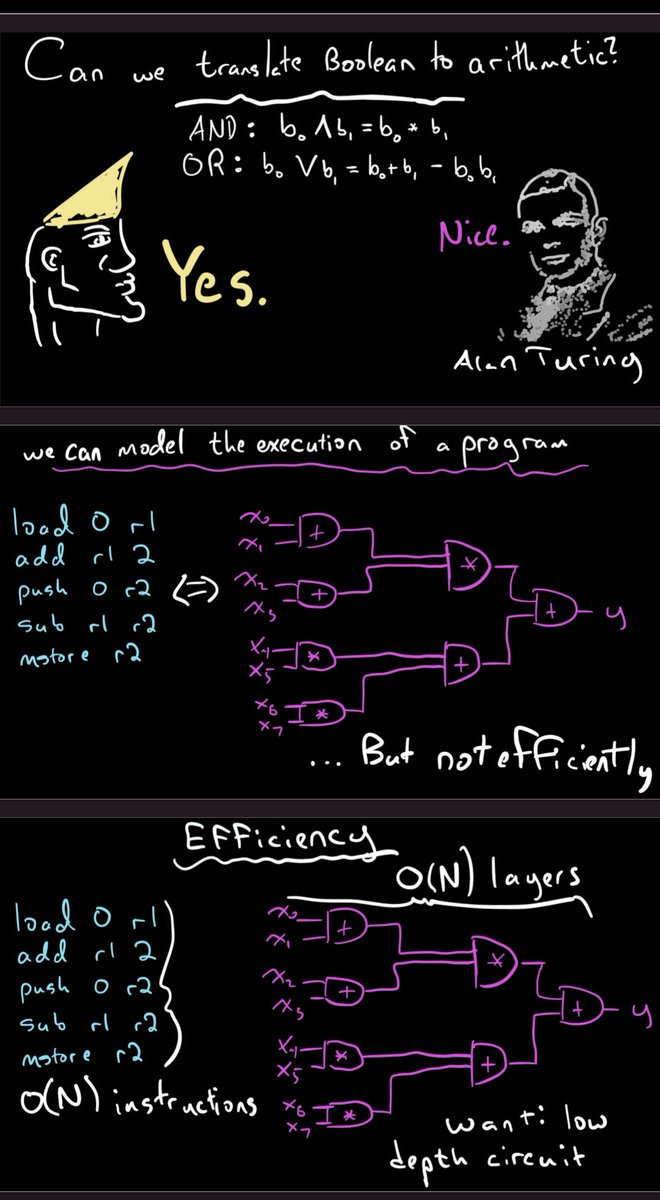 Can we translate Boolean to arithmetic?
AND: b₀ ∧ b₁ = b₀ * b₁
OR: b₀ ∨ b₁ = b₀ + b₁ - b₀b₁
Yes.
Nice.
Alan Turing
we can model the execution of a program
load 0 r1
add r1 2
push 0 r2
sub r1 r2
mstore r2
<=>
x₀
x₁
+
x₂
x₃
+
x₄
x₅
*
x₆
x₇
*
*
+
+
y
... But not efficiently
Efficiency
O(N) layers
load 0 r1
add r1 2
push 0 r2
sub r1 r2
mstore r2
O(N) instructions
x₀
x₁
+
x₂
x₃
+
x₄
x₅
*
x₆
x₇
*
*
+
+
y
want: low
depth circuit